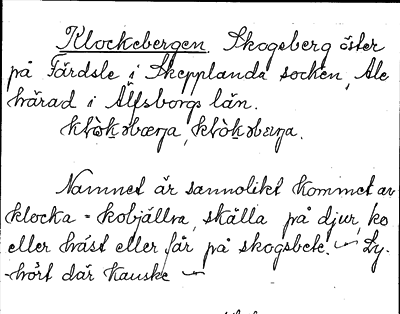 Klockebergen. Skogsberg öster
på Färdsle i Skepplanda socken, Ale
härad i Älfsborgs län.
Namnet är sannolikt kommet av
klocka = kobjällra, skälla på djur, ko
eller häst eller får på skogsbete. Ly-
hört där kanske